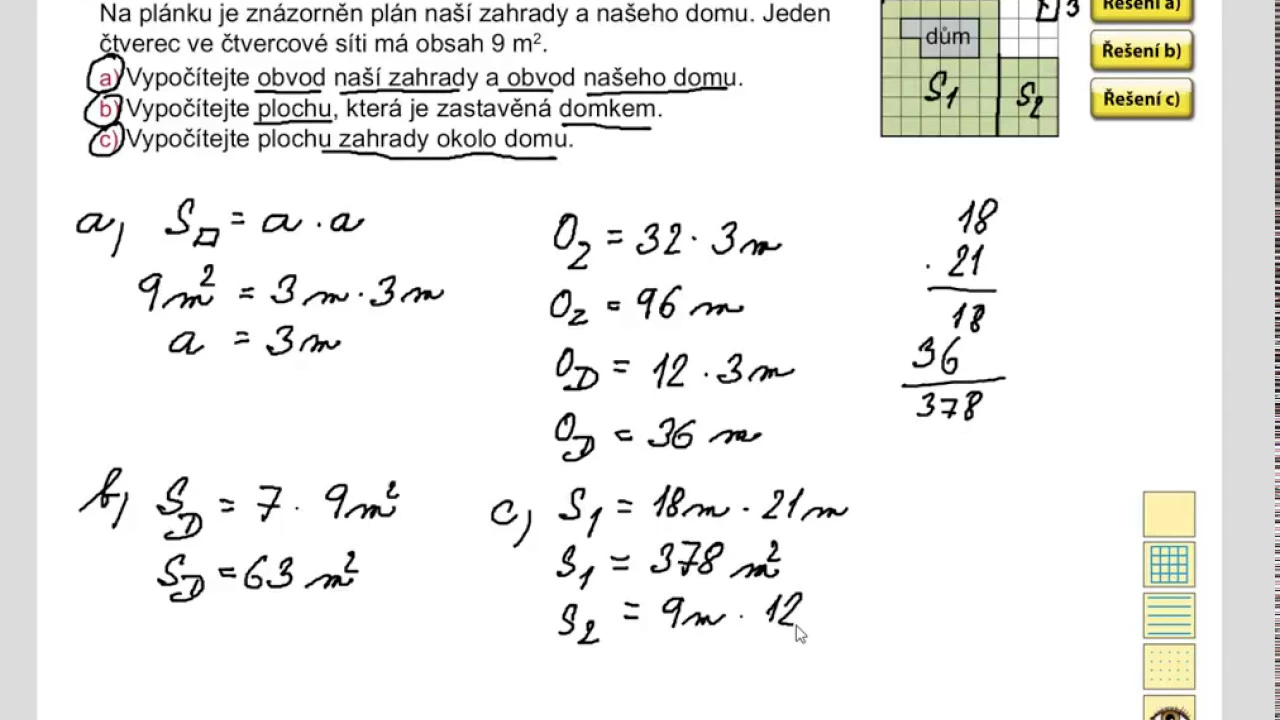 Na plánku je znázorněn plán naší zahrady a našeho domu. Jeden
čtverec ve čtvercové síti má obsah 9 m².
a) Vypočítejte obvod naší zahrady a obvod našeho domu.
b) Vypočítejte plochu, která je zastavěná domkem.
c) Vypočítejte plochu zahrady okolo domu.
3
dům
S1
S2
Řešení a)
Řešení b)
Řešení c)
a) S□ = a · a
9m² = 3m · 3m
a = 3m
OZ = 32 · 3m
OZ = 96 m
OD = 12 · 3m
OD = 36 m
18
· 21
18
36
378
b) SD = 7 · 9m²
SD = 63 m²
c) S1 = 18m · 21m
S1 = 378 m²
S2 = 9m · 12